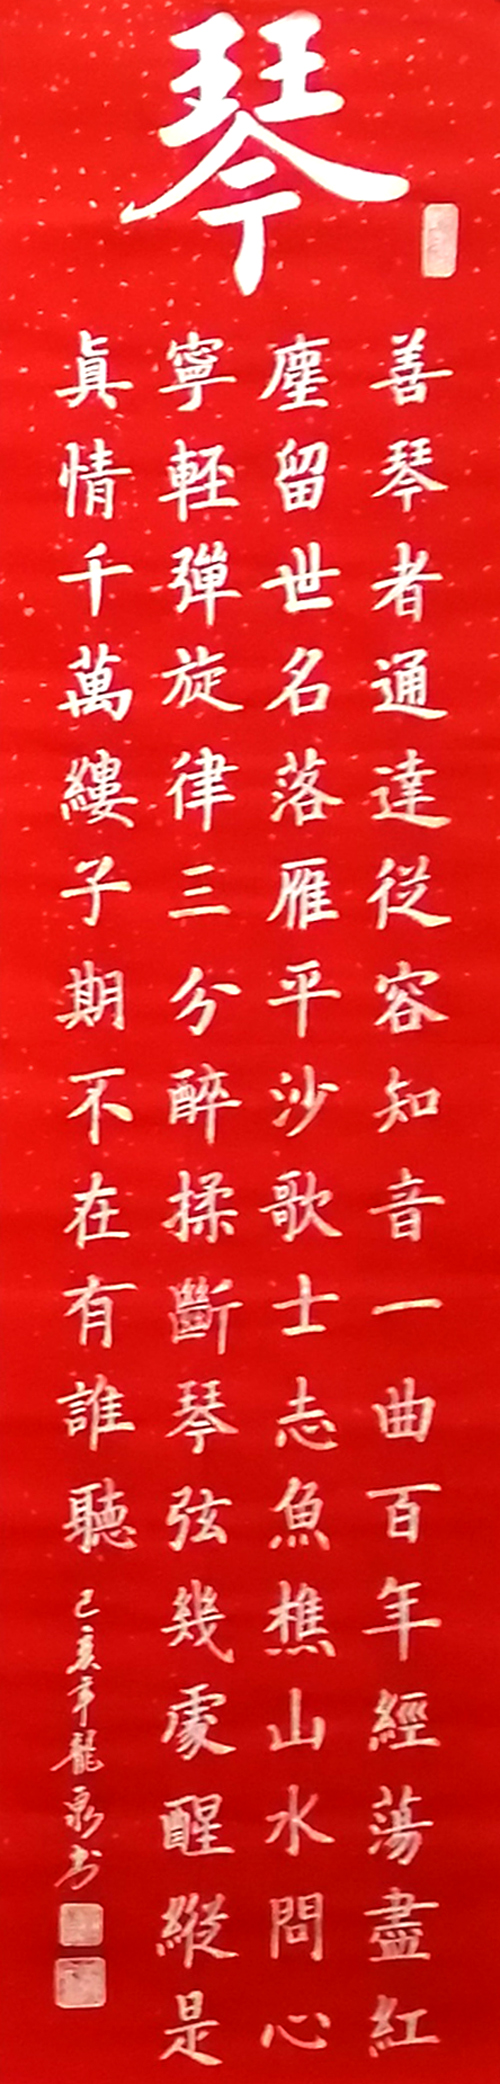 琴
善琴者通達從容知音一曲百年經蕩盡紅
塵留世名落雁平沙歌士志魚樵山水問心
寧輕彈旋律三分醉揉斷琴弦幾處醒縱是
眞情千萬縷子期不在有誰聽
己亥年龍泉书